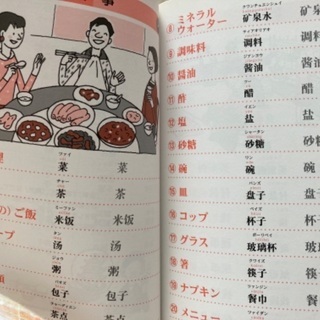 事
理 ツァイ 菜 菜
チャー 茶 茶
の) ご飯 ミーファン 米饭 米饭
ープ タン 汤 汤
ジョウ 粥 粥
バオズ 包子 包子
茶点 茶点
ミネラル
ウォーター 矿泉水 矿泉
⑨ 調味料 调料 调料
⑩ 醤油 ジアンヨウ 酱油 酱油
⑪ 酢 ツー 醋 醋
⑫ 塩 イエン 盐 盐
⑬ 砂糖 シャータン 砂糖 砂糖
⑭ 碗 ワン 碗 碗
⑮ 皿 パンズ 盘子 盘子
⑯ コップ ベイズ 杯子 杯子
⑰ グラス ボーリベイ 玻璃杯 玻璃
⑱ 箸 クワイズ 筷子 筷子
⑲ ナプキン ツァンジン 餐巾 餐巾
⑳ メニュー